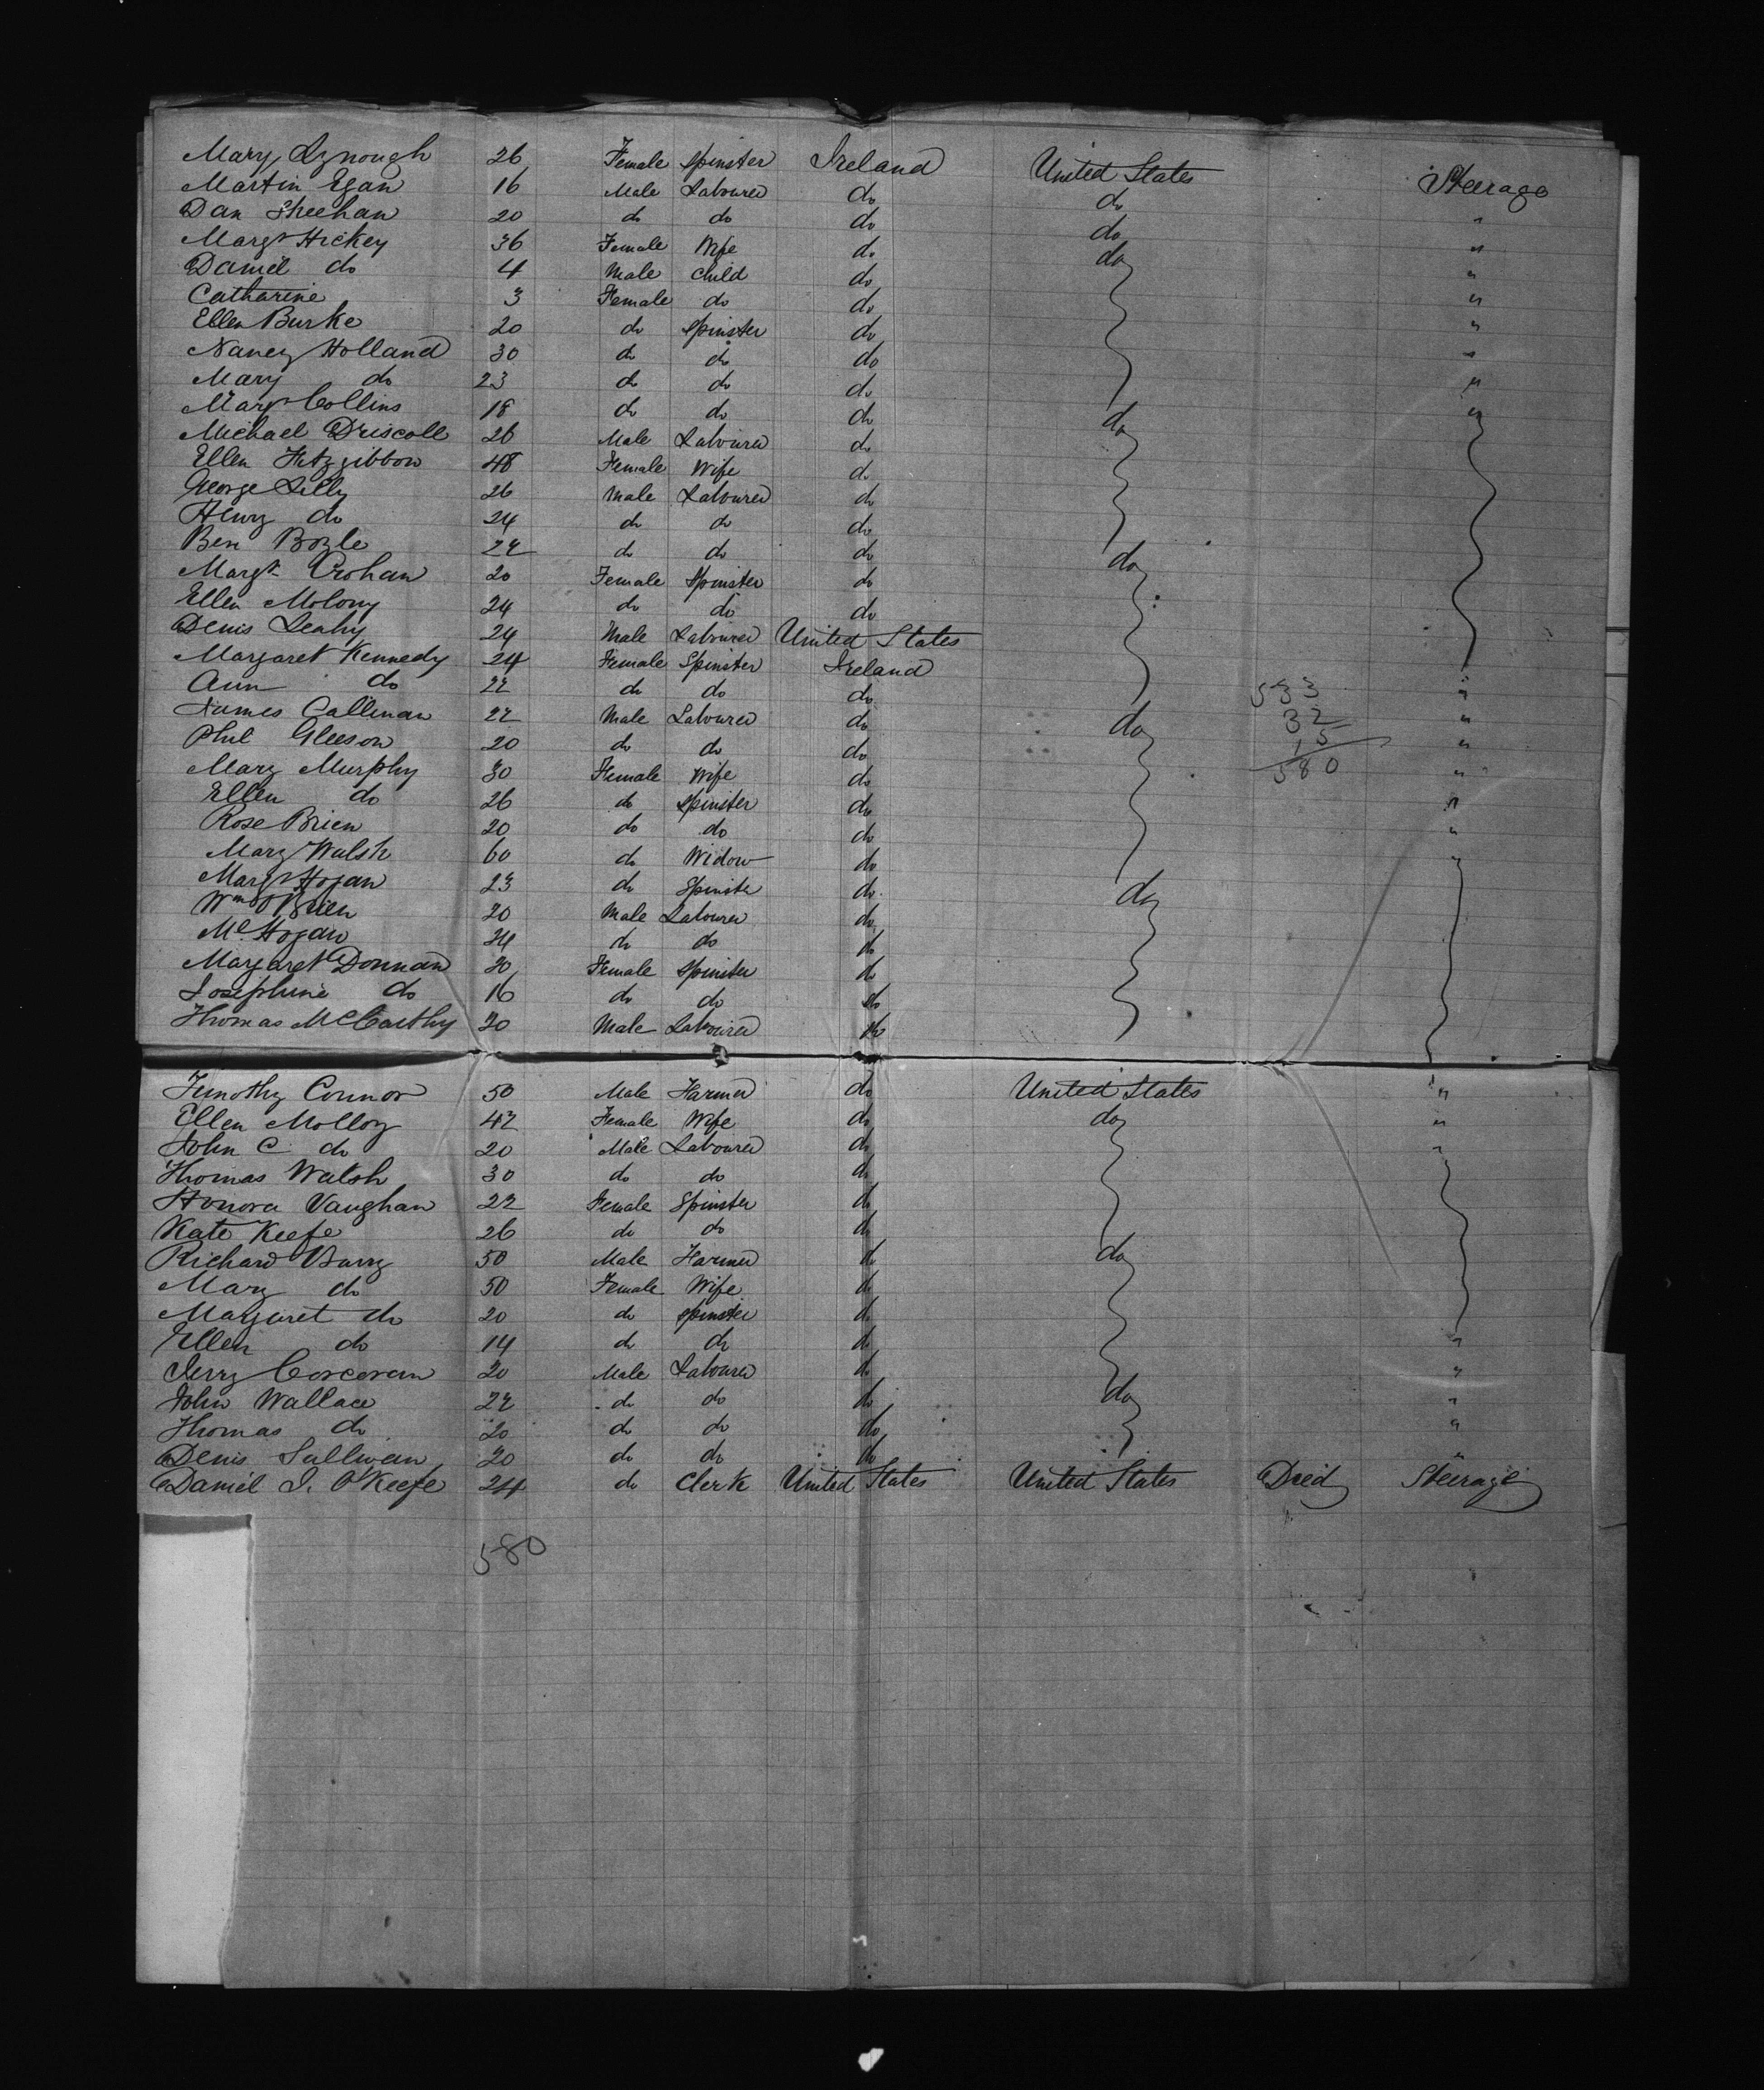 Mary Lynough 26 Female Spinster Ireland United States Steerage
Martin Egan 16 Male Labourer do do "
Dan Sheehan 20 do do do do "
Margt Hickey 36 Female Wife do do "
Daniel do 4 Male Child do "
Catharine 3 Female do do "
Ellen Burke 20 do Spinster do "
Nancy Holland 30 do do do "
Mary do 23 do do do "
Margt Collins 18 do do do do "
Michael Driscoll 26 Male Labourer do
Ellen Fitzgibbon 48 Female Wife do
George Lilly 26 Male Labourer do
Henry do 24 do do do
Ben Boyle 22 do do do do
Margt Crohan 20 Female Spinster do
Ellen Molony 24 do do do
Denis Leahy 24 Male Labourer United States
Margaret Kennedy 24 Female Spinster Ireland "
Ann do 22 do do do 533 "
James Callinan 22 Male Labourer do do 32 "
Phil Gleeson 20 do do do 15 "
Mary Murphy 30 Female Wife do 580 "
Ellen do 26 do Spinster do "
Rose Brien 20 do do do "
Mary Walsh 60 do Widow do "
Margt Hogan 23 do Spinster do do
Wm O'Brien 20 Male Labourer do
Ml Hogan 24 do do do
Margaret Donnan 20 Female Spinster do
Josephine do 16 do do do
Thomas McCarthy 20 Male Labourer do
Timothy Connor 50 Male Farmer do United States "
Ellen Molloy 42 Female Wife do do "
John C do 20 Male Labourer do "
Thomas Walsh 30 do do do
Honora Vaughan 22 Female Spinster do
Kate Keefe 26 do do do
Richard Barry 50 Male Farmer do do
Mary do 50 Female Wife do
Margaret do 20 do Spinster do
Ellen do 14 do do do "
Jerry Corcoran 20 Male Labourer do "
John Wallace 22 do do do do "
Thomas do 20 do do do "
Denis Sullivan 20 do do do "
Daniel J. O'Keefe 24 do Clerk United States United States Died Steerage
580